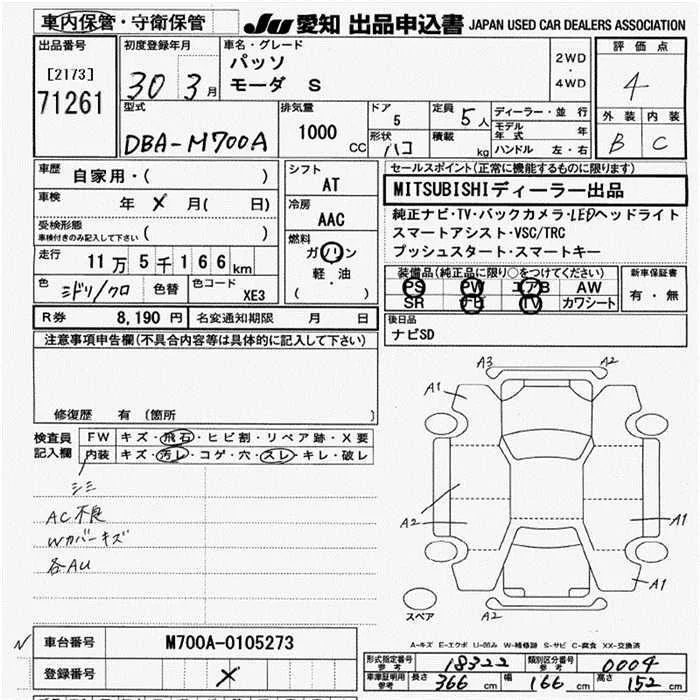 車内保管・守衛保管
JU 愛知 出品申込書 JAPAN USED CAR DEALERS ASSOCIATION
出品番号
[2173]
71261
初度登録年月
30 3月
車名・グレード
パッソ
モーダ S
2WD
・
4WD
評価点
4
外装 内装
B C
型式
DBA-M700A
排気量
1000
CC
ドア
5
形状
ハコ
定員
5人
積載
kg
ディーラー・並行
モデル年式 年
ハンドル 左・右
車歴
自家用・( )
車検 年 メ 月( 日)
受検形態
車検付きのみ記入して下さい ( )
走行 11万5千166km
色 ミドリ/クロ 色替 色コード XE3
シフト
AT
冷房
AAC
燃料
ガソリン
軽・油
( )
セールスポイント(正常に機能するものに限ります)
MITSUBISHIディーラー出品
純正ナビ・TV・バックカメラ・LEDヘッドライト
スマートアシスト・VSC/TRC
プッシュスタート・スマートキー
装備品(純正品に限り○をつけてください)
PS PW エアB AW
SR ナビ TV カワシート
新車保証書
有・無
R券 8,190 円 名変通知期限 月 日
後日品
ナビSD
注意事項申告欄(不具合内容等は具体的に記入して下さい)
修復歴 有 〔箇所 〕
検査員
記入欄
FW キズ・飛石・ヒビ割・リペア跡・X要
内装 キズ・汚レ・コゲ・穴・スレ・キレ・破レ
シミ
AC不良
Wカバーキズ
各AU
A3 A2
A1
A2 A1
A1
A2
スペア
N
車台番号 M700A-0105273
登録番号 メ
A-キズ E-エクボ U-凹み W-補修跡 S-サビ C-腐食 XX-交換済
形式指定番号 参考 18322 類別区分番号 参考 0004
車庫証明用 参考 長さ 366 cm 幅 166 cm 高さ 152 cm